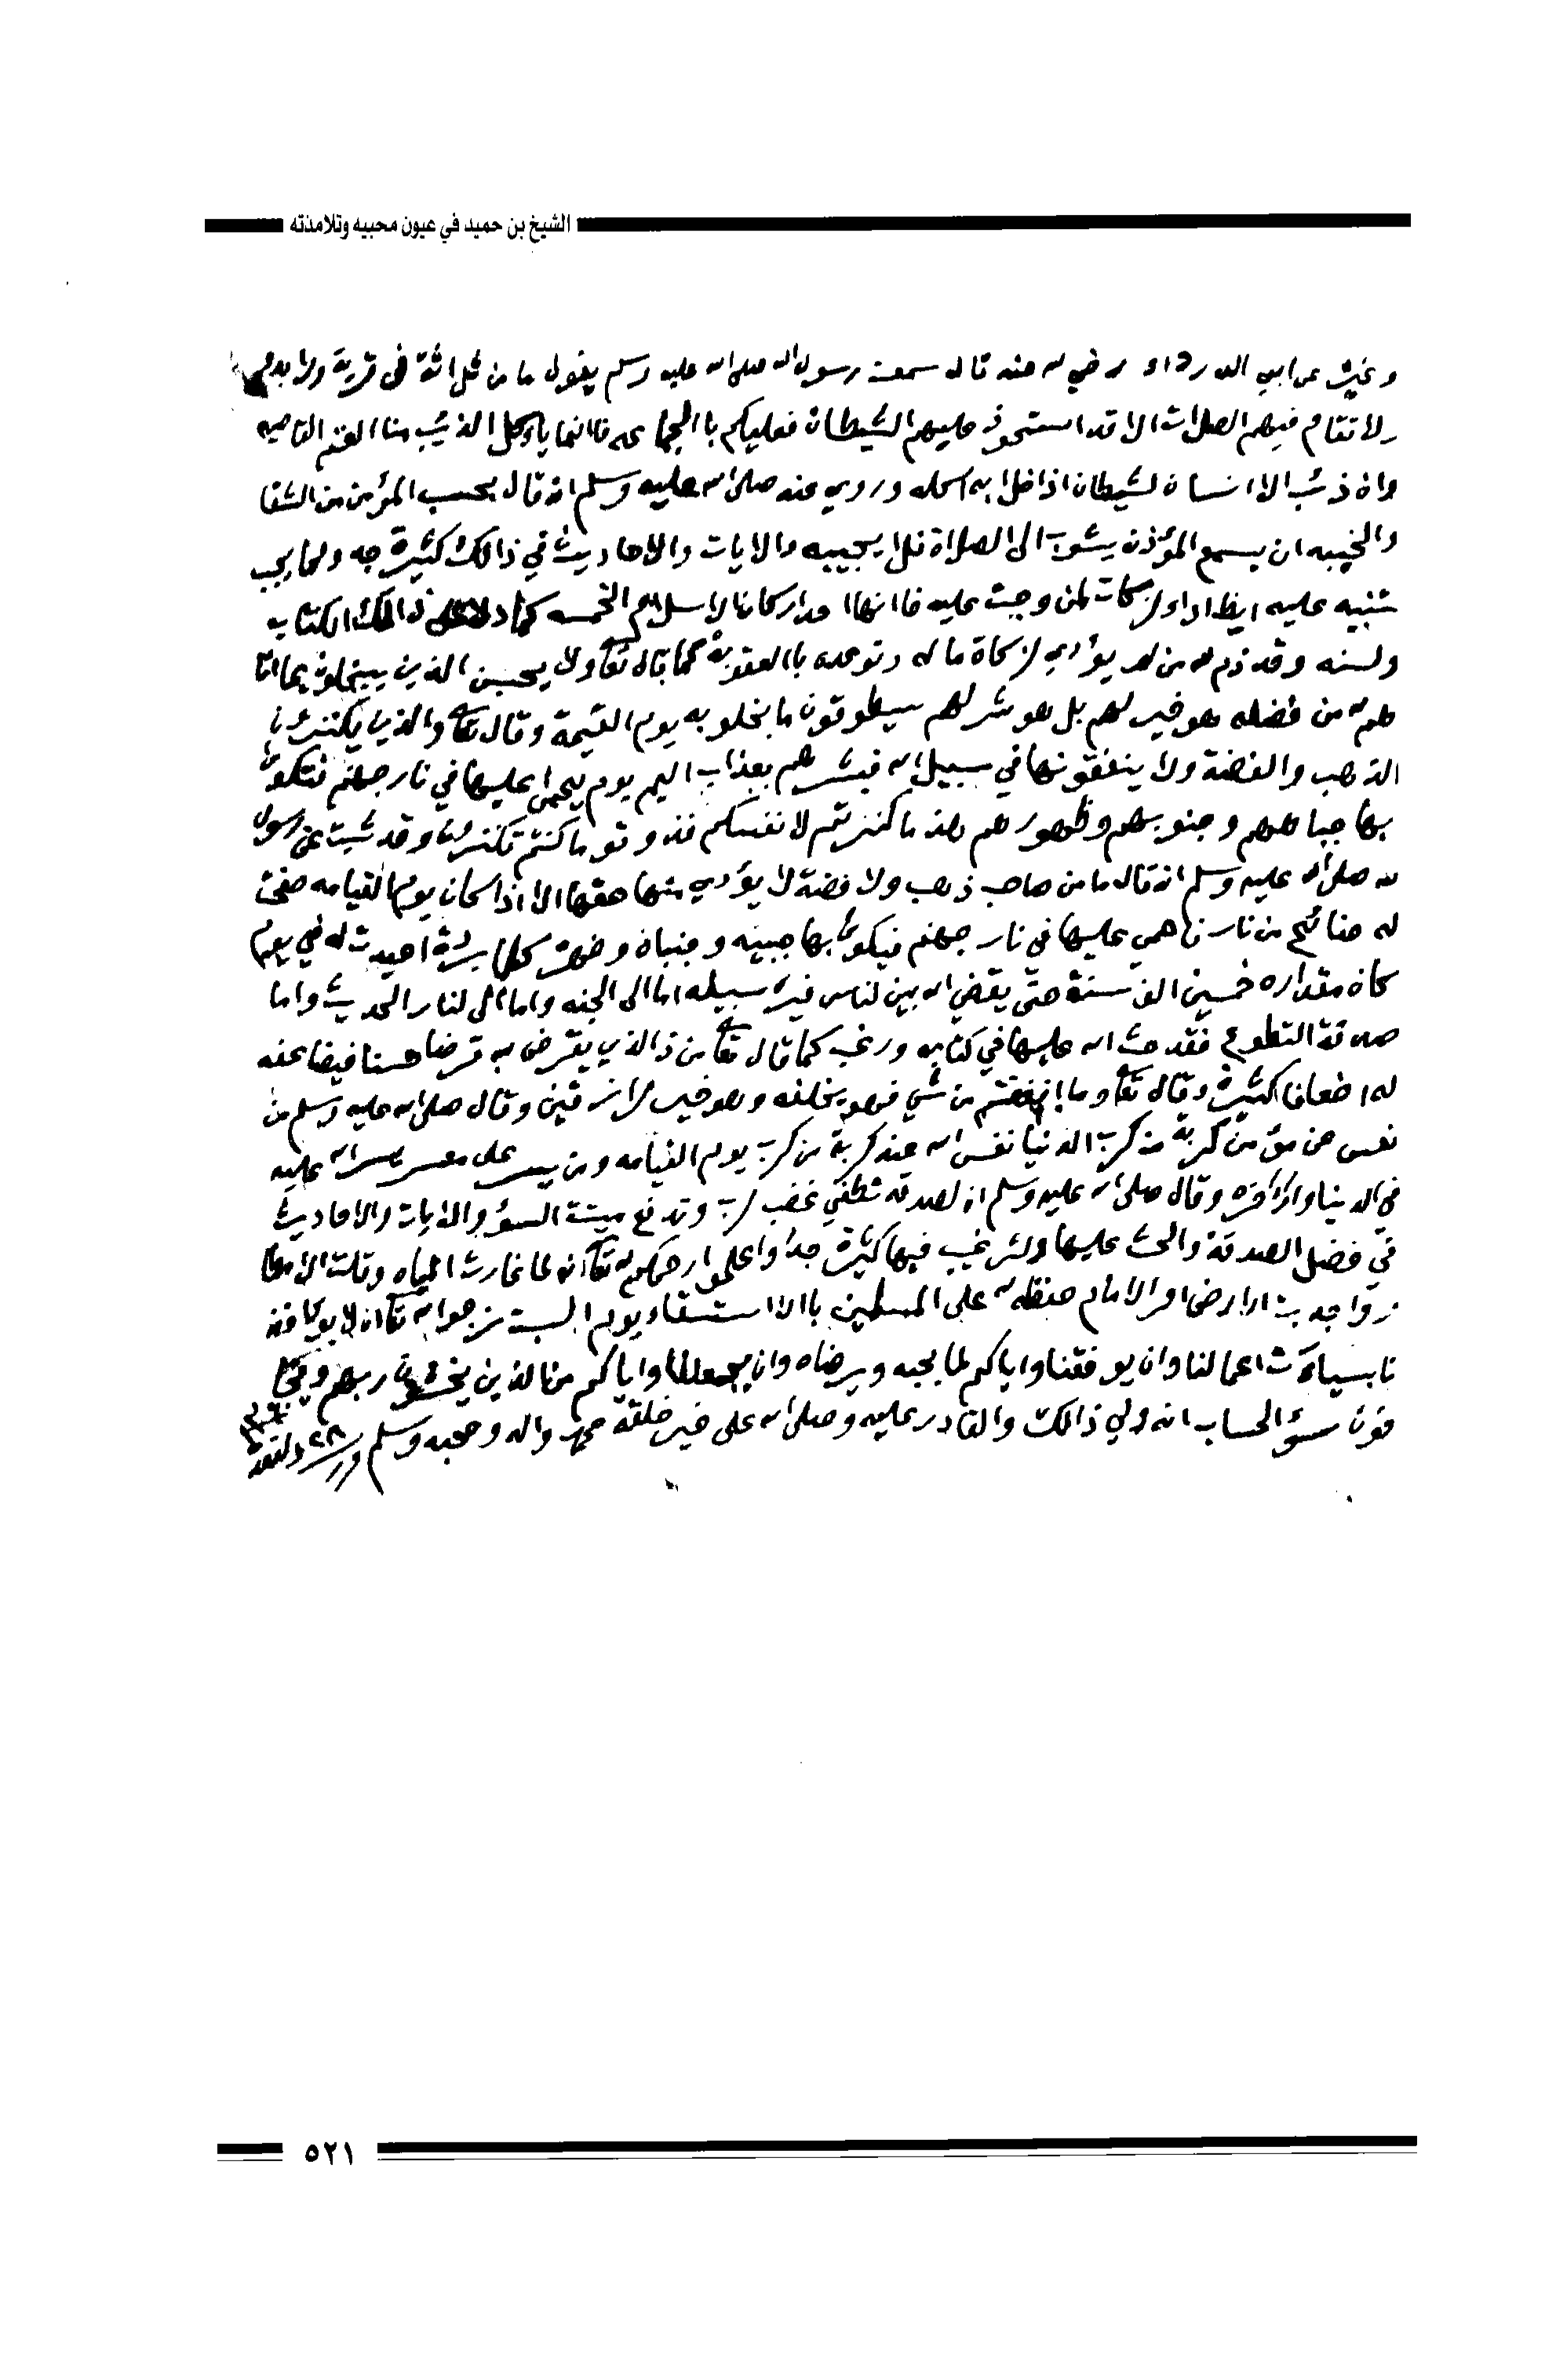 الشيخ بن حميد في عيون محبيه وتلامذته
وغيره عن ابي الدرداء رضي الله عنه قال سمعت رسول الله صلى الله عليه وسلم يقول ما من ثلاثة في قرية ولا بدو
لا تقام فيهم الصلات الا قد استحوذ عليهم الشيطان فعليكم باالجماعه فاانما ياءكل الذئب منا الغنم القاصيه
وان ذئب الاانسان لشيطان اذا خلا به اكله وروي عنه صلى الله عليه وسلم انه قال بحسب المؤمن من الشقا
والخيبه ان يسمع المؤذن يثوب الى الصلاة فلا يجيبه والايات والاحاديث في ذالك كثيرة جه ومما يجب
تنبيه عليه ايظا اداء لزكات لمن وجبت عليه فاانها احد اركانا لاسلام الخمسه كما دلا على ذالك الكتاب
ولسنه وقد ذم الله من لم يؤدي لزكاة ماله وتوعده باالعقوبة كما قال تعا ولا يحسبن الذين يبخلون بما اتا
هم الله من فضله هو خير لهم بل هو شر لهم سيطوقون ما بخلو به يوم القيمة وقال تعا والذين يكنزون
الذهب والفضة ولا ينفقونها في سبيل الله فبشرهم بعذاب اليم يوم يحمى عليها في نار جهنم فتكوى
بها جباههم وجنوبهم وظهورهم هذ ما كنزتم لانفسكم فذوقو ما كنتم تكنزون وقد ثبت عن رسول
الله صلى الله عليه وسلم انه قال ما من صاحب ذهب ولا فضة لا يؤدي منها حقها الا اذا كان يوم القيامه صفحت
له صفائح من نار فاحمي عليها في نار جهنم فيكوى بها جبينه وجنباه وظهره كلما بردة اعيدت له في يوم
كان مقداره خمسين الف سنة حتى يقضي الله بين لناس فيرى سبيله اما الى الجنه واما الى لنار الحديث واما
صدقة التطوع فقد حث الله عليها في كتابه ورغب كما قال تعا من ذالذي يقرض الله قرضا حسنا فيضاعفه
له اضعافا كثيرة وقال تعا وما انفقتم من شي فهو يخلفه وهو خير لرازقين وقال صلى الله عليه وسلم من
نفس عن مؤمن كربة من كرب الدنيا نفس الله عنه كربة من كرب يوم القيامه ومن يسر على معسر يسر الله عليه
في الدنيا والاخره وقال صلى الله عليه وسلم ان لصدقه تطفي غضب لرب وتدفع ميتة السؤ والايات والاحاديث
في فضل الصدقة والحث عليها ولترغيب فيها كثيرة جدا واعلمو ارحمكم الله تعا انه لما غارت المياه وقلت الامطار
واجدبت الارض امر الامام حفظه الله على المسلمين باالاستسقاء يوم السبت نرجوا الله تعا ان لا يؤاخذ
نا بسيآت اعمالنا وان يوفقنا واياكم لما يحبه ويرضاه وان يجعلنا واياكم من الذين يخشون ربهم ويخا
فون سؤ الحساب انه ولي ذالك والقادر عليه وصلى الله على خير خلقه محمد واله وصحبه وسلم
٥٢١